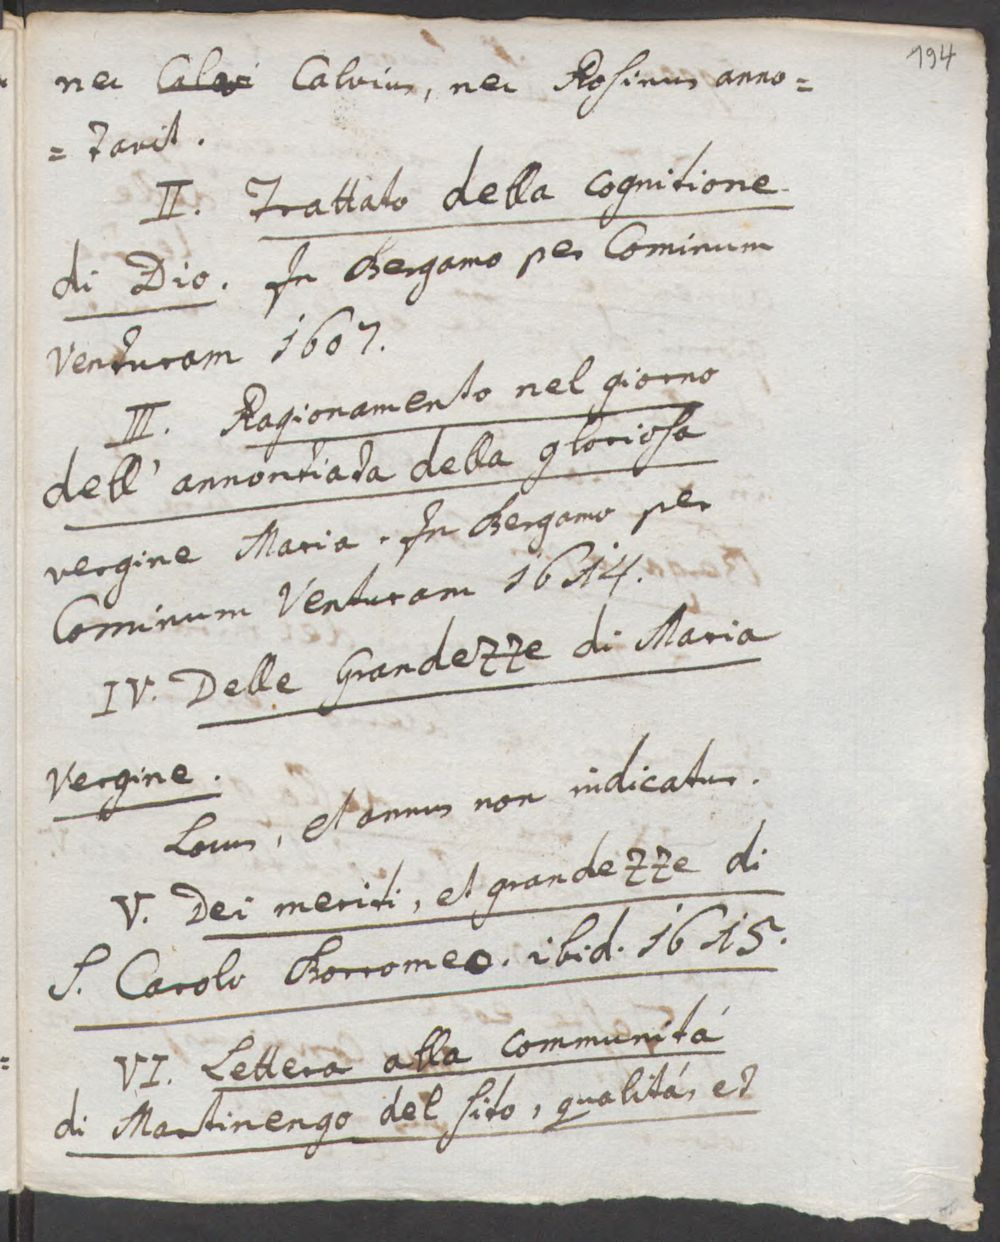 194
nec Calvi Calvius, nec Rosinus anno=
=tavit.
II. Trattato della cognitione
di Dio. In Bergamo per Cominum
Venturam 1607.
III. Ragionamento nel giorno
dell' annontiata della gloriosa
vergine Maria. In Bergamo per
Cominum Venturam 1614.
IV. Delle Grandezze di Maria
Vergine.
Locus, et annus non indicatur.
V. Dei meriti, et grandezze di
S. Carolo Borromeo. ibid. 1615.
VI. Lettera alla communitá
di Martinengo del sito, qualitá, et